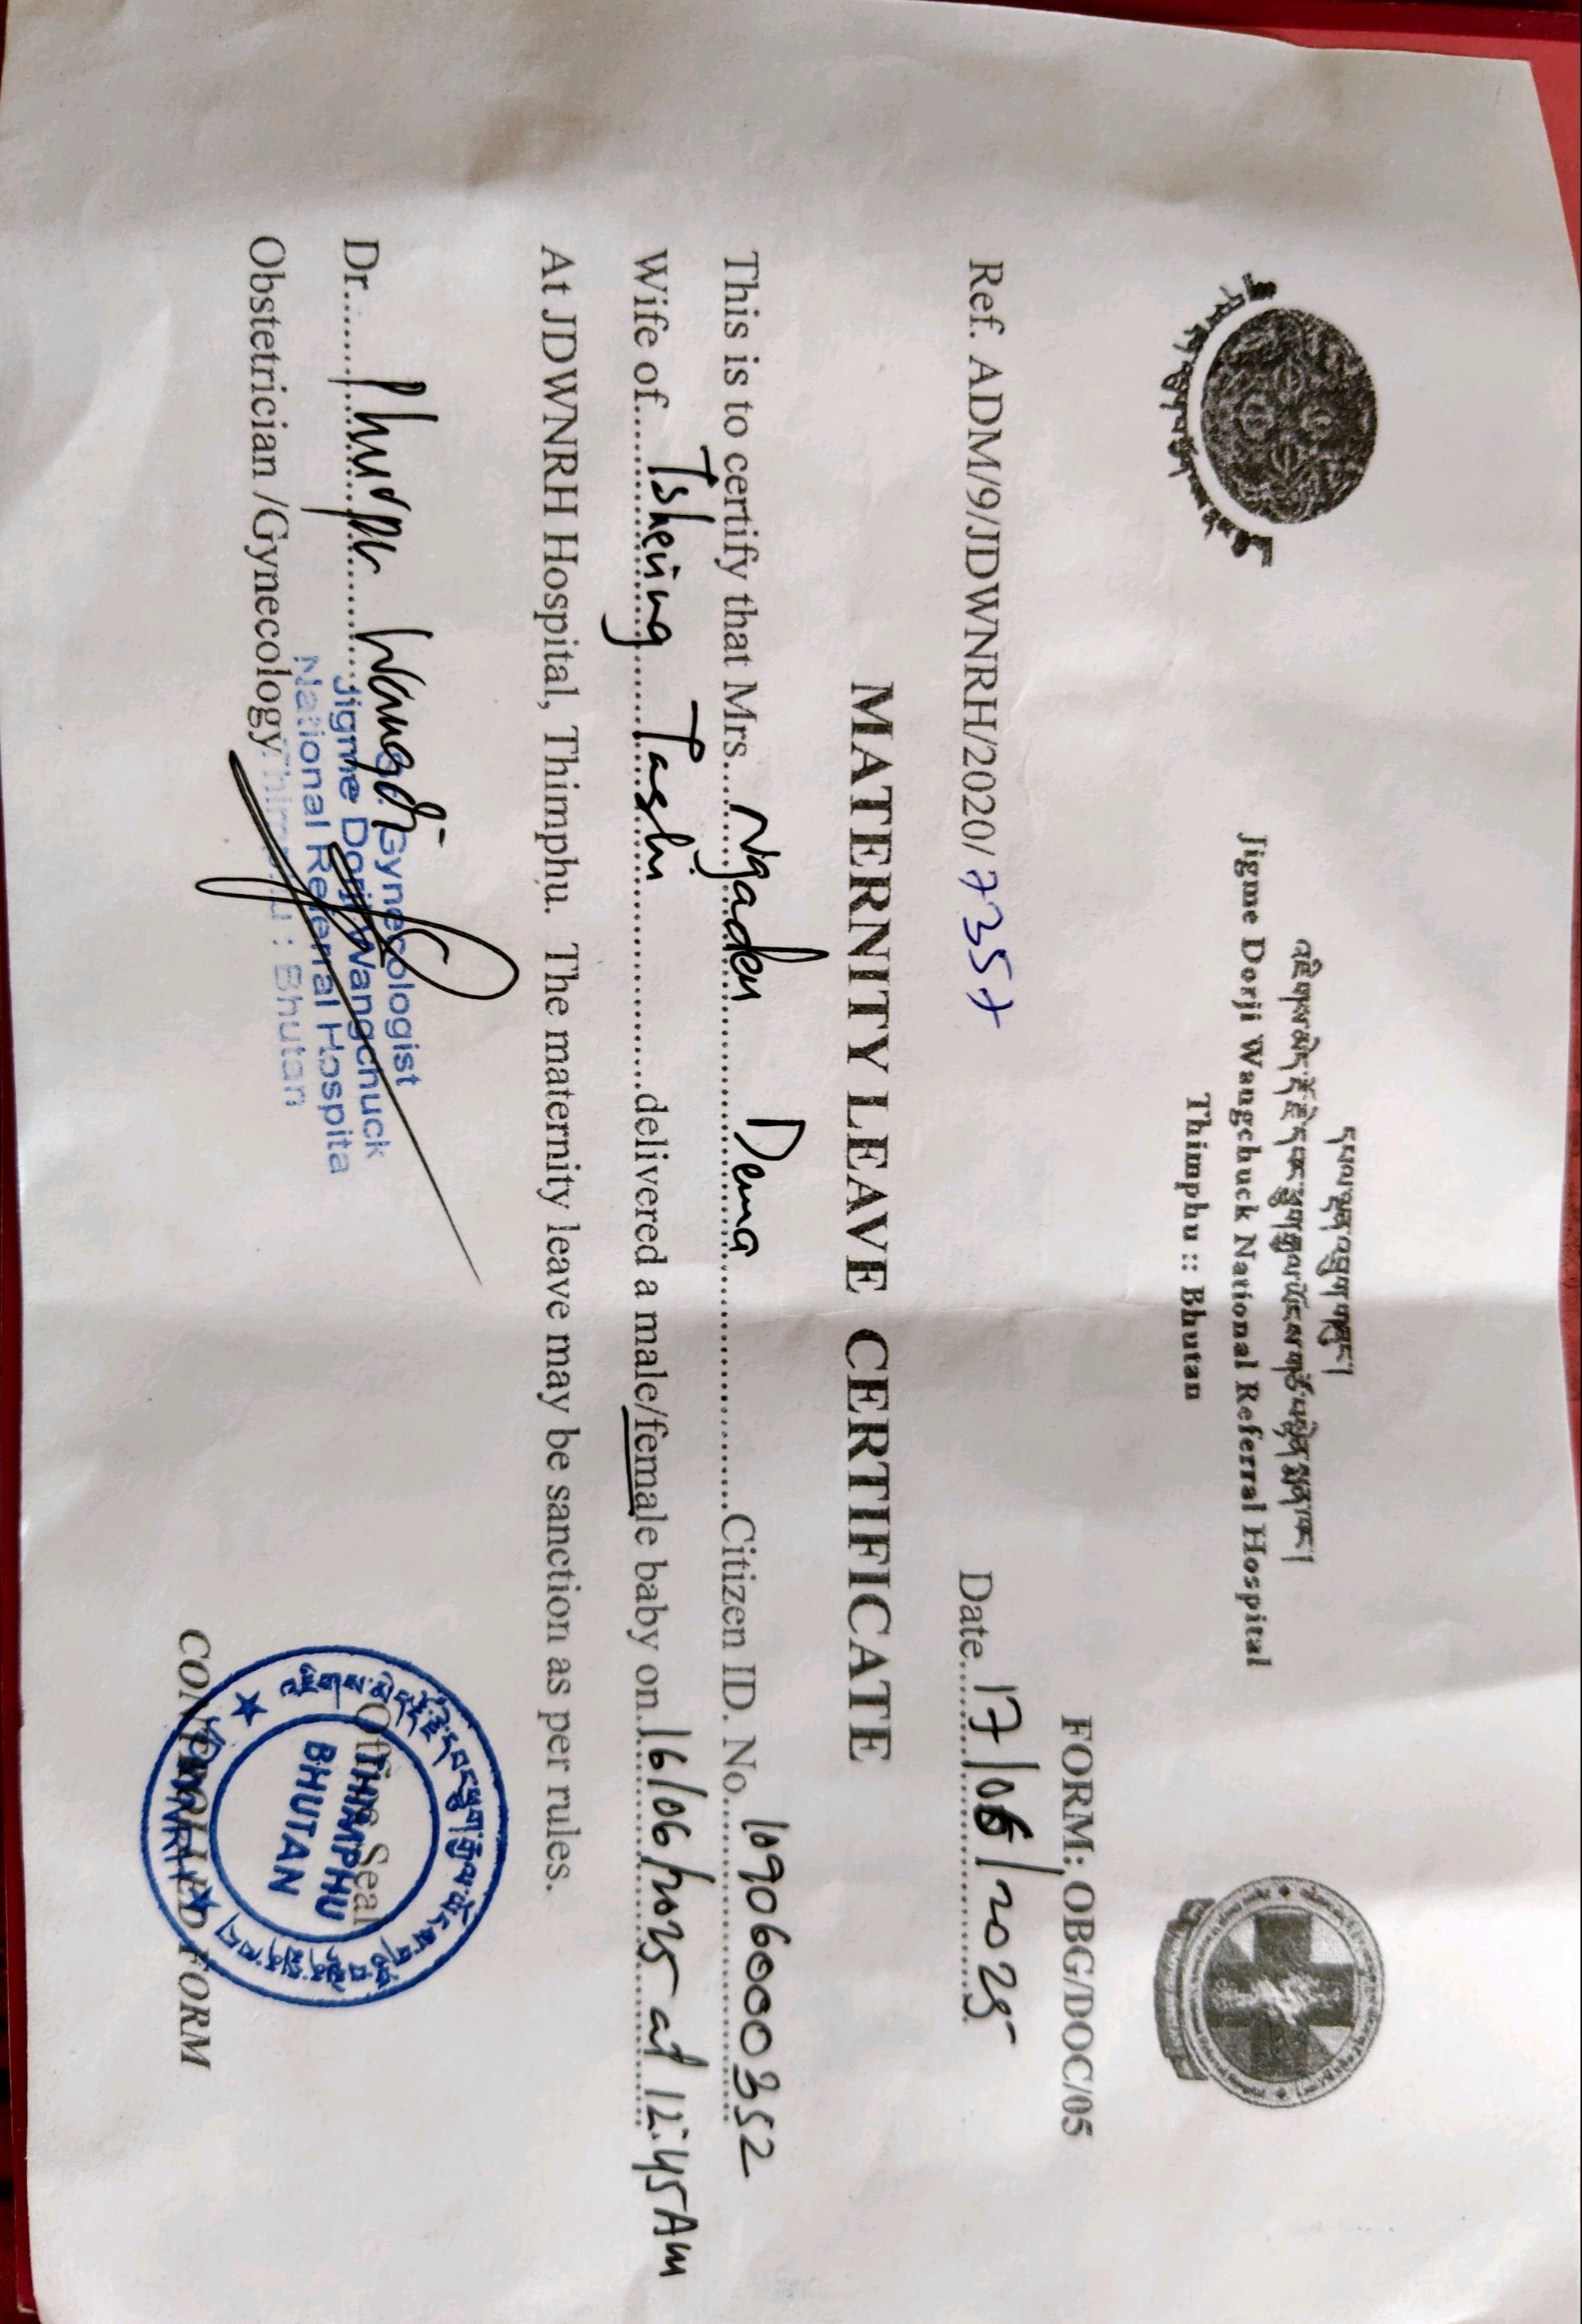 དཔལ་ལྡན་འབྲུག་གཞུང་།
འཇིགས་མེད་རྡོ་རྗེ་དབང་ཕྱུག་རྒྱལ་ཡོངས་གཙོ་བསྟེན་སྨན་ཁང་།
Jigme Dorji Wangchuck National Referral Hospital
Thimphu :: Bhutan
FORM: OBG/DOC/05
Ref. ADM/9/JDWNRH/2020/7357 Date 17/06/2025
MATERNITY LEAVE CERTIFICATE
This is to certify that Mrs. Ngaden Dema Citizen ID. No. 10906000352
Wife of Tshering Tashi delivered a male/female baby on 16/06/2025 at 12:45 Am
At JDWNRH Hospital, Thimphu. The maternity leave may be sanction as per rules.
Dr. Wangdi
Gynecologist
Jigme Dorji Wangchuck
National Referral Hospita
Thimphu : Bhutan
Obstetrician /Gynecology
Office Seal
THIMPHU
BHUTAN
JDWNRH
CONTROLLED FORM